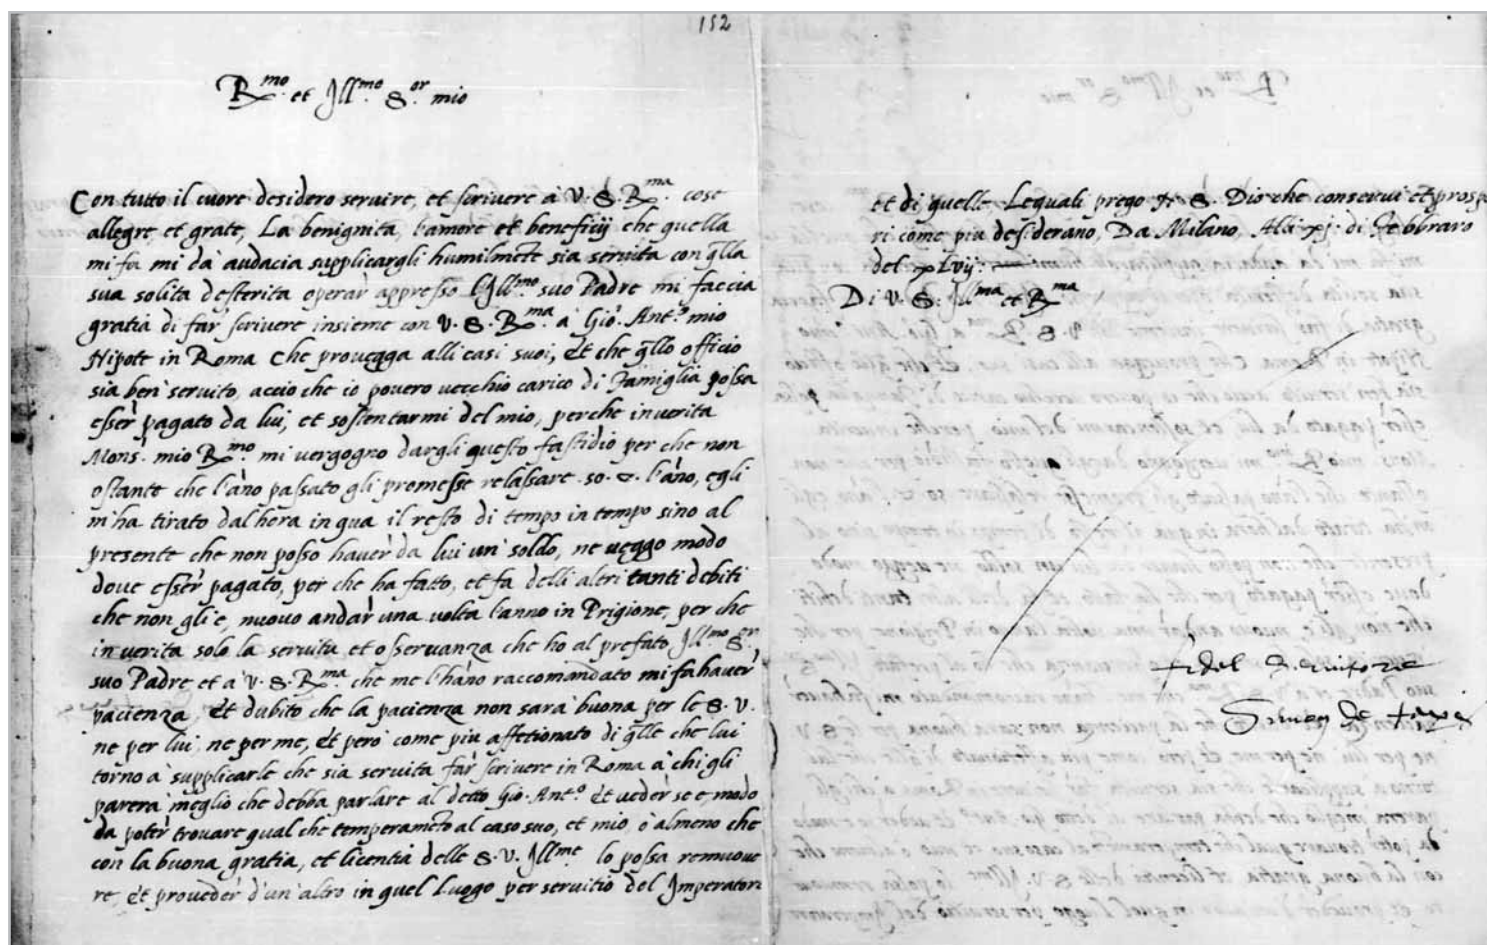 152
R.mo et Ill.mo S.or mio
Con tutto il cuore desidero servire, et scrivere à V. S. R.ma cose
allegre et grate, La benignita, l'amore et beneficij che quella
mi fa mi dà audacia supplicargli humilmēte sia servita con q̄lla
sua solita desterita operar appresso l'Ill.mo suo Padre mi faccia
gratia di far scrivere insieme con V. S. R.ma à Gio. Ant.o mio
Nipote in Roma Che provegga alli casi suoi, et che q̄llo officio
sia ben servito, accio che io povero vecchio carico di Famiglia possa
esser pagato da lui, et sostentarmi del mio, perche in verita
Mons. mio R.mo mi vergogno dargli questo fastidio per che non
ostante che l'āno passato gli promesse relassare .50. l'āno, egli
m'ha tirato dal hora in qua il resto di tempo in tempo sino al
presente che non posso haver da lui un soldo, ne veggo modo
dove esser pagato, per che ha fatto, et fa delli altri tanti debiti
che non gli e, nuovo andar una volta l'anno in Prigione, per che
in verita solo la servitu et osservanza che ho al prefato Ill.mo S.or
suo Padre et à V. S. R.ma che me l'hāno raccomandato mi fa haver
pacienza, et dubito che la pacienza non sarà buona per le S. V.
ne per lui, ne per me, et però come piu affetionato di q̄lle che lui
torno à supplicarle che sia servita far scrivere in Roma à chi gli
parera meglio che debba parlare al detto Gio. Ant.o et veder se e, modo
da poter trovare qual che temperamēto al caso suo, et mio, ò almeno che
con la buona gratia, et licentia delle S. V. Ill.me lo possa remuove
re, et proveder d'un altro in quel Luogo per servitio del Imperatore
et di quelle Lequali prego N. S. Dio che conservi et prospe
ri come piu desiderano, Da Milano, Alli xj. di Febbraro
del xLvij.
Di V. S. Ill.ma et R.ma
fidel Servitore
Simon de Taxis